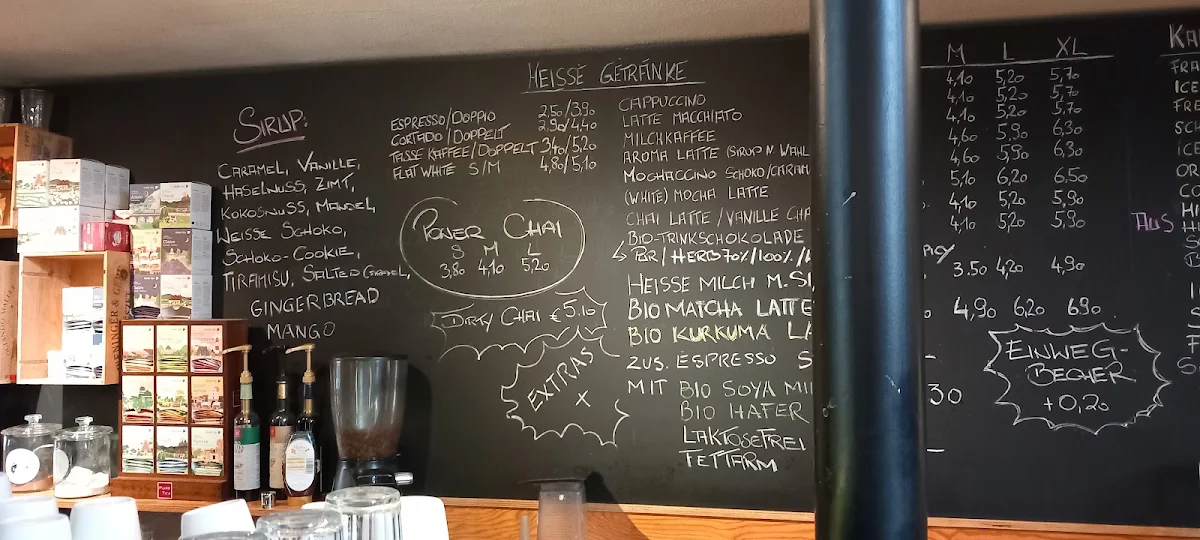 SIRUP:
CARAMEL, VANILLE,
HASELNUSS, ZIMT,
KOKOSNUSS, MANDEL,
WEISSE SCHOKO,
SCHOKO-COOKIE,
TIRAMISU, SALTED CARAMEL,
GINGERBREAD
MANGO
HEISSE GETRÄNKE
ESPRESSO/DOPPIO 2,50/3,90
CORTADO/DOPPELT 2,90/4,40
TASSE KAFFEE/DOPPELT 3,40/5,20
FLAT WHITE S/M 4,80/5,10
POWER CHAI
S M L
3,80 4,10 5,20
DIRTY CHAI € 5.10
EXTRAS
X
CAPPUCCINO
LATTE MACCHIATO
MILCHKAFFEE
AROMA LATTE (SIRUP N. WAHL
MOCHACCINO SCHOKO/CARAM
(WHITE) MOCHA LATTE
CHAI LATTE/VANILLE CHA
BIO-TRINKSCHOKOLADE
PUR/HERB 70%/100%/
HEISSE MILCH M. SI
BIO MATCHA LATTE
BIO KURKUMA LA
ZUS. ESPRESSO S
MIT BIO SOYA MI
BIO HAFER
LAKTOSEFREI
FETTARM
M L XL
4,10 5,20 5,70
4,10 5,20 5,70
4,10 5,20 5,70
4,60 5,90 6,30
4,60 5,90 6,30
5,10 6,20 6,50
4,10 5,20 5,90
4,10 5,20 5,90
3.50 4,20 4,90
4,90 6,20 6,90
30
EINWEG-
BECHER
+0,20
AUS
KA
FRA
ICE
FRE
SC
ICE
OR
CO